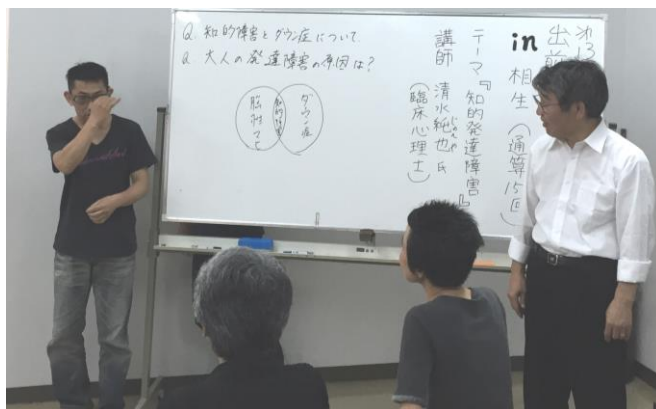 Q. 知的障害とダウン症について
Q. 大人の発達障害の原因は?
脳性マヒ
知的障害
ダウン症
第13
出前
in 相生(通算15回)
テーマ『知的発達障害』
講師 清水純也氏
じゅんや
(臨床心理士)